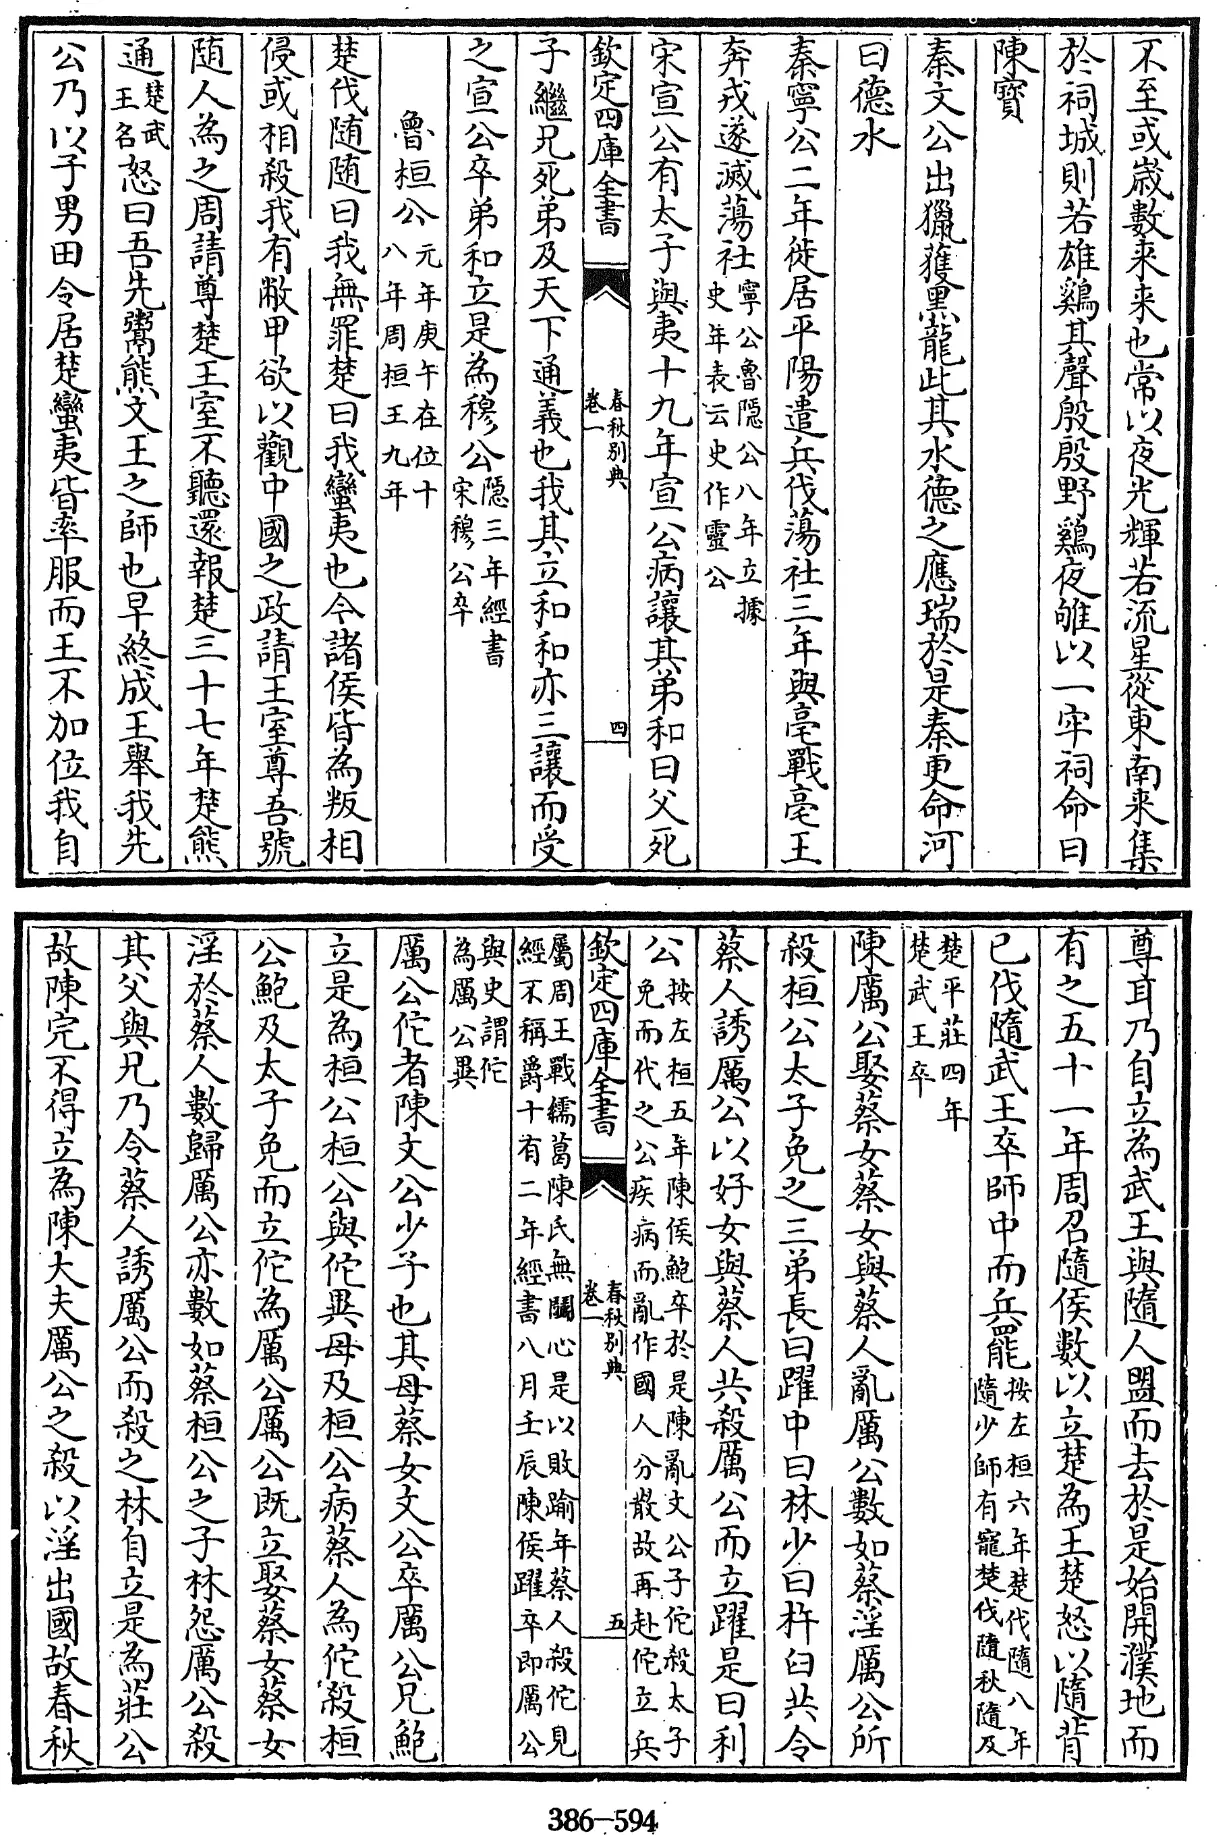 不至或歲數来来也常以夜光輝若流星從東南来集
於祠城則若雄鷄其聲殷殷野鷄夜雊以一牢祠命曰
陳寶
秦文公出獵獲黒龍此其水德之應瑞於是秦更命河
曰德水
秦寧公二年徙居平陽遣兵伐蕩社三年與亳戰亳王
奔戎遂滅蕩社寧公魯隱公八年立據
史年表云史作靈公
宋宣公有太子與夷十九年宣公病讓其弟和曰父死
欽定四庫全書
春秋别典
卷一
四
子繼兄死弟及天下通義也我其立和和亦三讓而受
之宣公卒弟和立是為穆公隱三年經書
宋穆公卒
魯桓公元年庚午在位十
八年周桓王九年
楚伐随随曰我無罪楚曰我蠻夷也今諸侯皆為叛相
侵或相殺我有敝甲欲以觀中國之政請王室尊吾號
随人為之周請尊楚王室不聽還報楚三十七年楚熊
通楚武
王名怒曰吾先鬻熊文王之師也早終成王舉我先
公乃以子男田令居楚蠻夷皆率服而王不加位我自
尊耳乃自立為武王與隨人盟而去於是始開濮地而
有之五十一年周召隨侯數以立楚為王楚怒以隨背
已伐隨武王卒師中而兵罷按左桓六年楚伐隨八年
隨少師有寵楚伐隨秋隨及
楚平莊四年
楚武王卒
陳厲公娶蔡女蔡女與蔡人亂厲公數如蔡淫厲公所
殺桓公太子免之三弟長曰躍中曰林少曰杵臼共令
蔡人誘厲公以好女與蔡人共殺厲公而立躍是曰利
公按左桓五年陳侯鮑卒於是陳亂文公子佗殺太子
免而代之公疾病而亂作國人分散故再赴佗立兵
欽定四庫全書
春秋别典
卷一
五
屬周王戰繻葛陳氏無鬭心是以敗踰年蔡人殺佗見
經不稱爵十有二年經書八月壬辰陳侯躍卒即厲公
與史謂佗
為厲公異
厲公佗者陳文公少子也其母蔡女文公卒厲公兄鮑
立是為桓公桓公與佗異母及桓公病蔡人為佗殺桓
公鮑及太子免而立佗為厲公厲公既立娶蔡女蔡女
淫於蔡人數歸厲公亦數如蔡桓公之子林怨厲公殺
其父與兄乃令蔡人誘厲公而殺之林自立是為莊公
故陳完不得立為陳大夫厲公之殺以淫出國故春秋
386-594